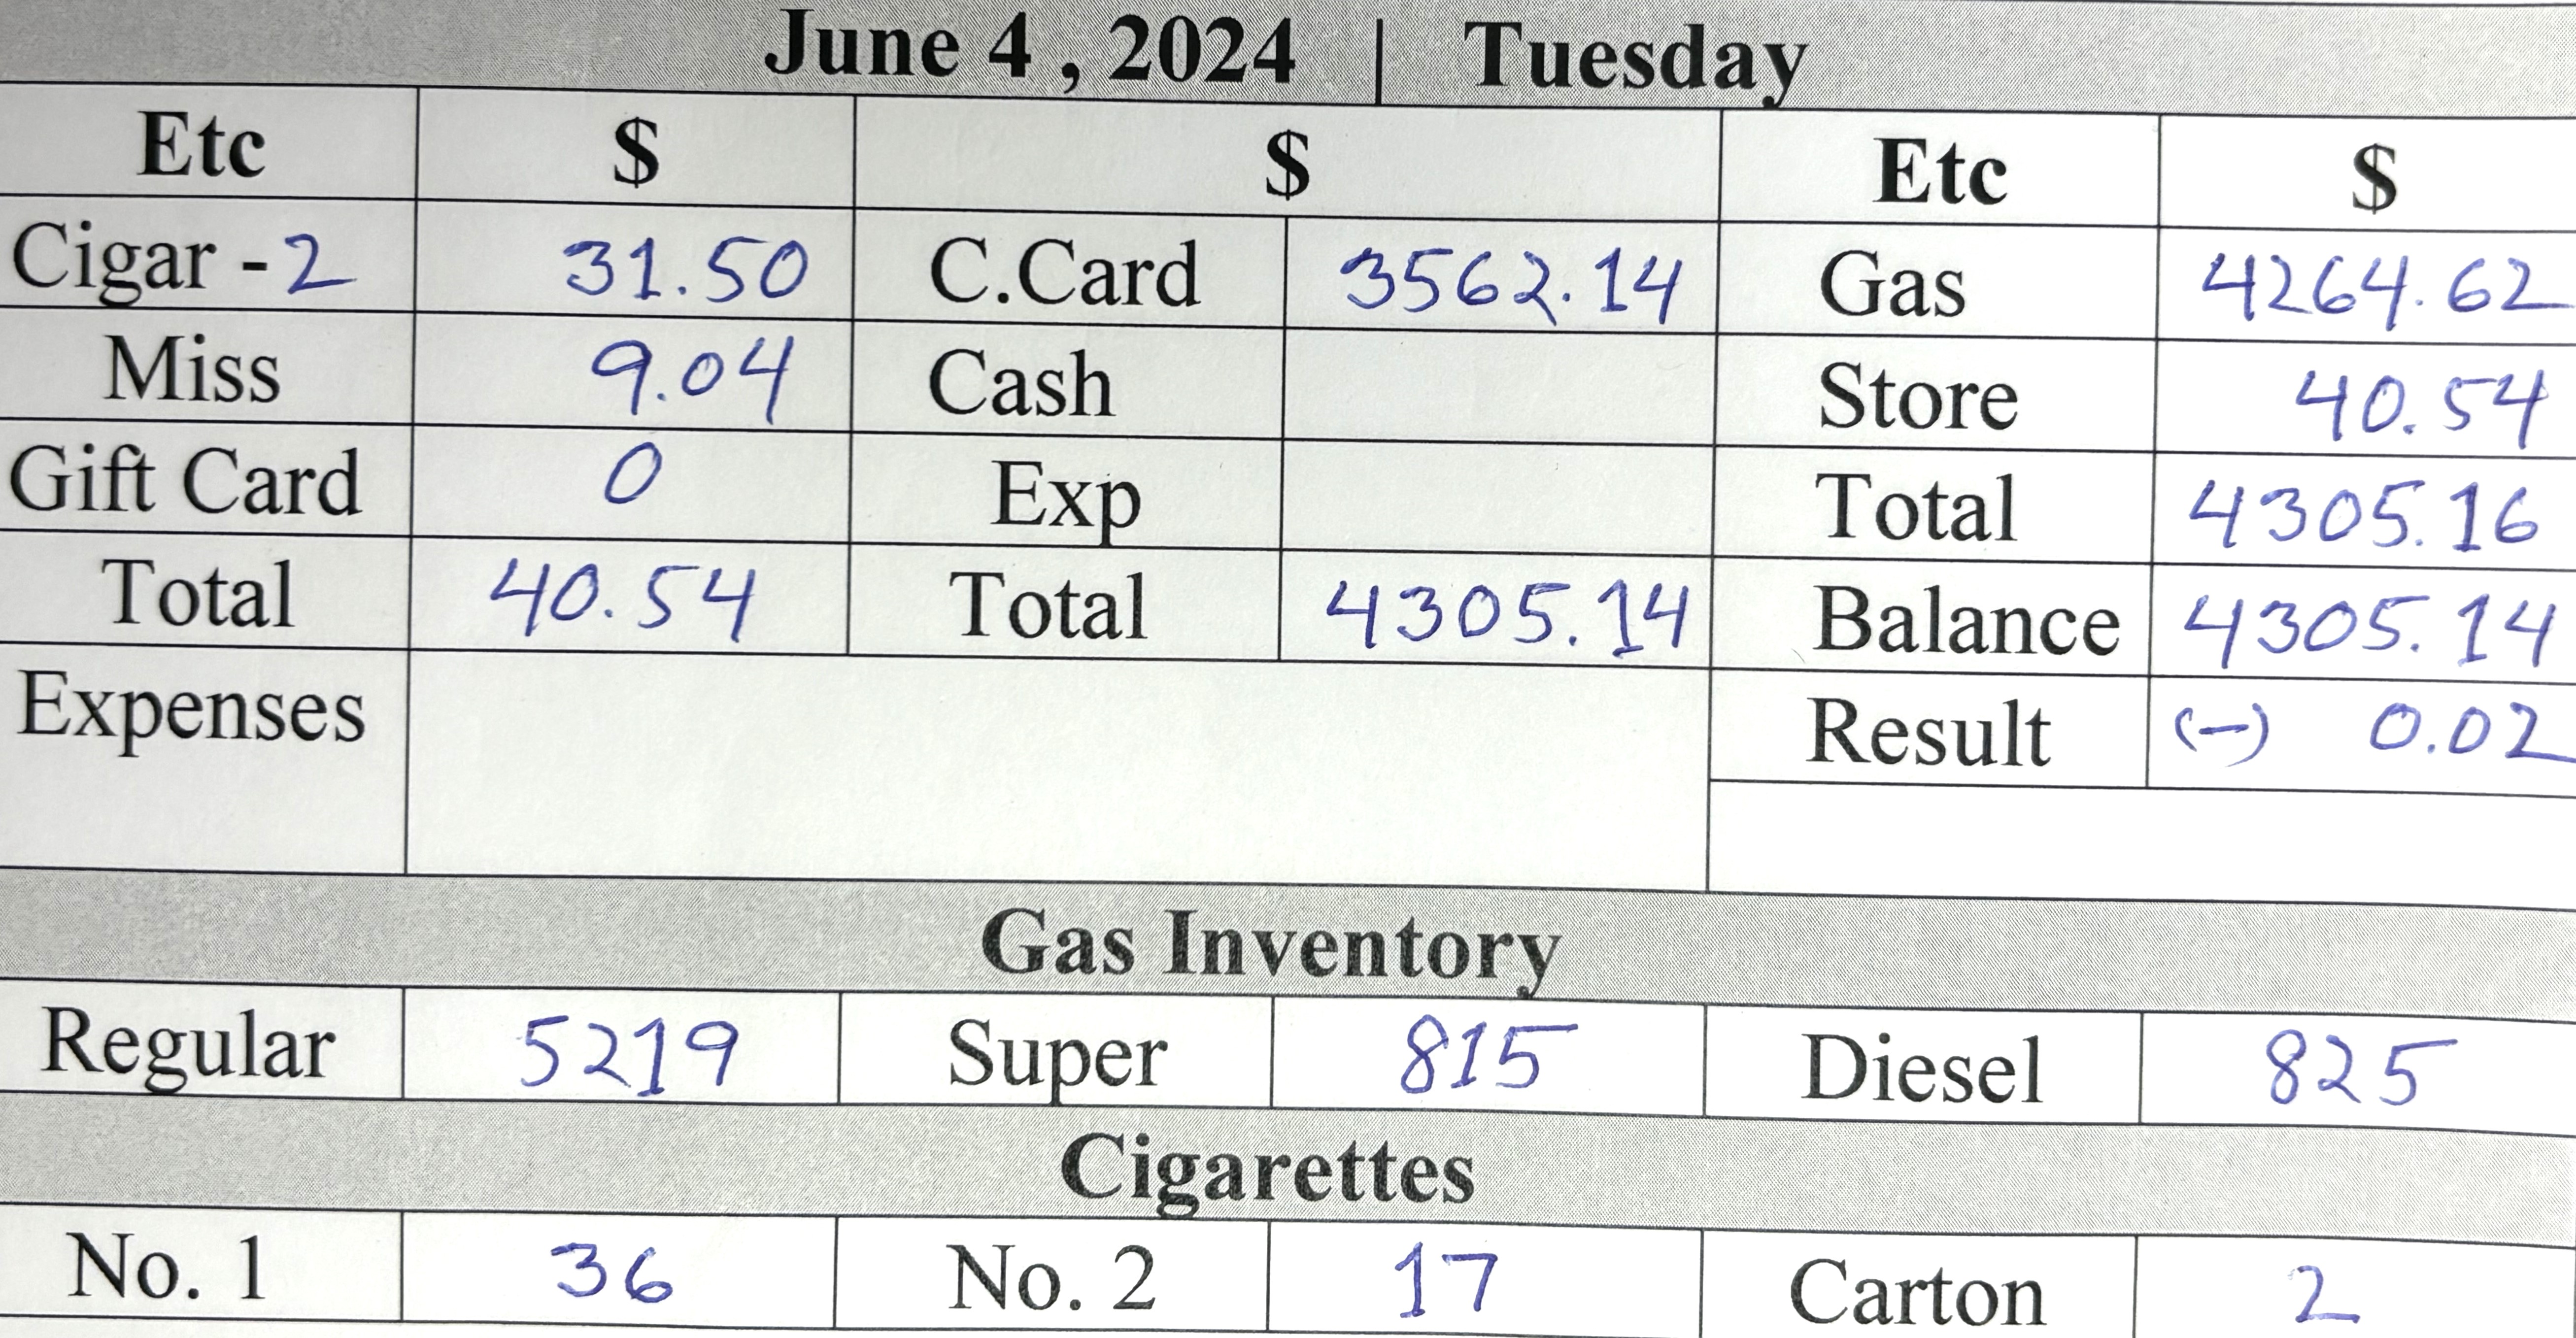 June 4 , 2024 | Tuesday
Etc $ $ Etc $
Cigar - 2 31.50 C.Card 3562.14 Gas 4264.62
Miss 9.04 Cash Store 40.54
Gift Card 0 Exp Total 4305.16
Total 40.54 Total 4305.14 Balance 4305.14
Expenses Result (-) 0.02
Gas Inventory
Regular 5219 Super 815 Diesel 825
Cigarettes
No. 1 36 No. 2 17 Carton 2